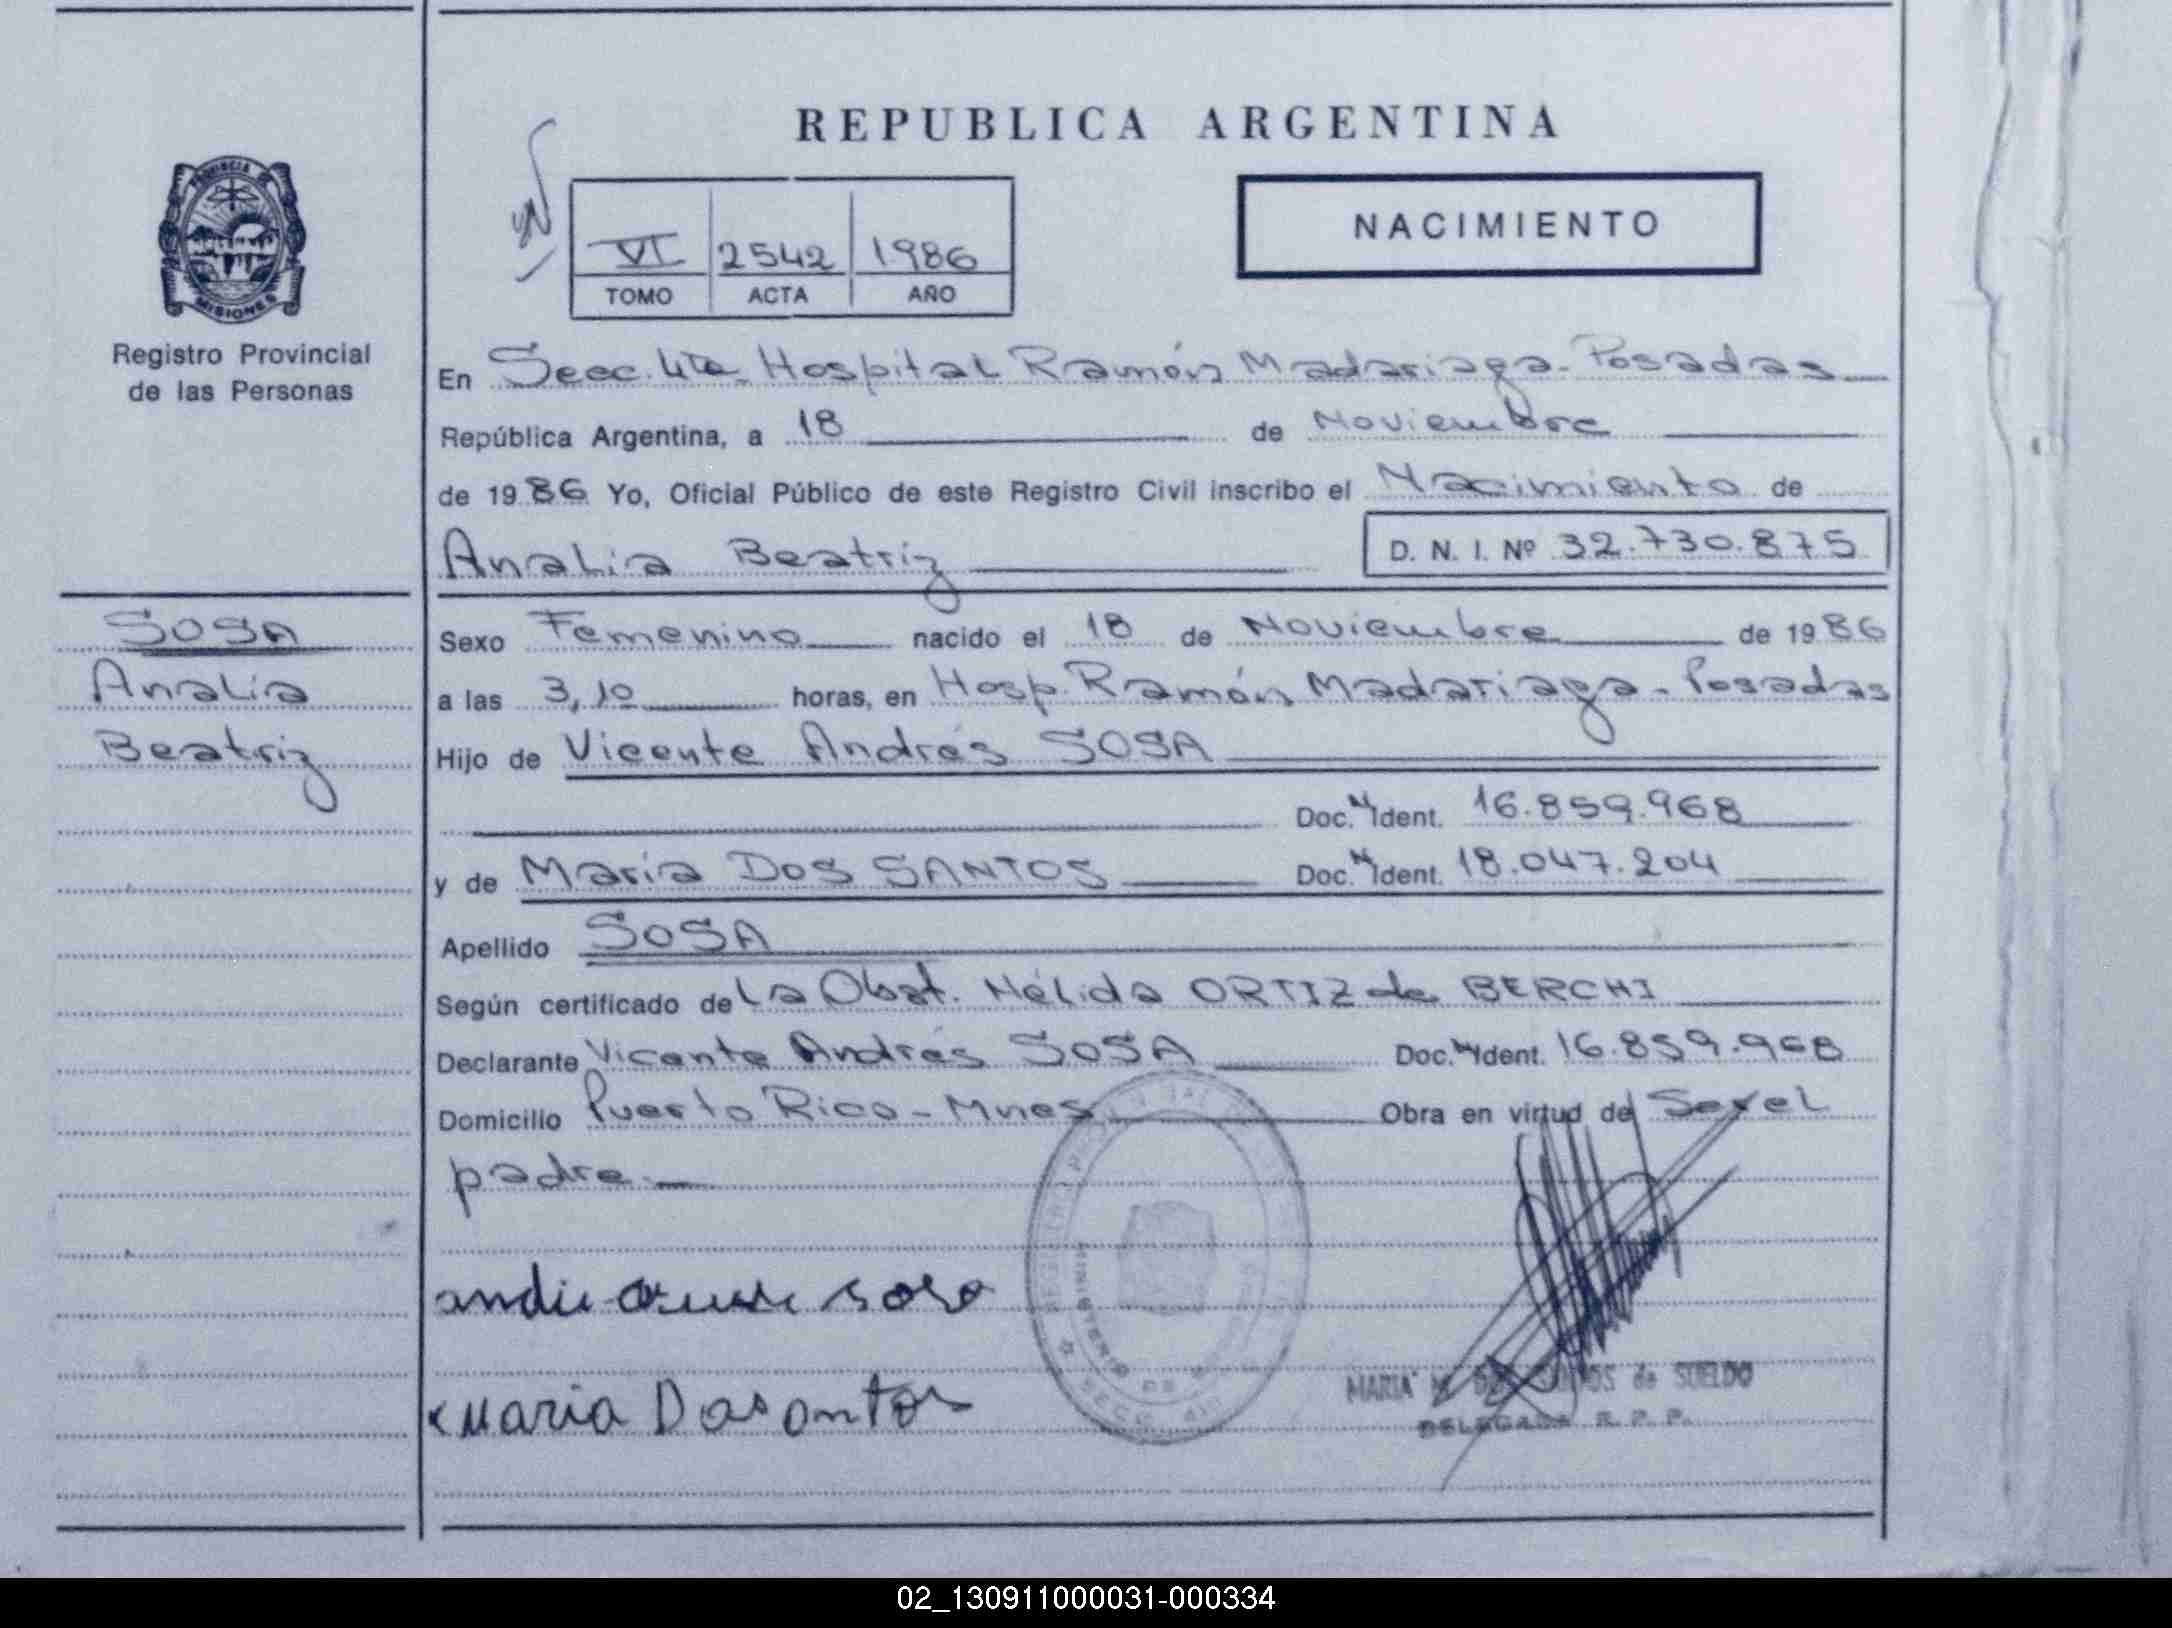 REPUBLICA ARGENTINA
NACIMIENTO
VI 2542 1986
TOMO ACTA AÑO
PROVINCIA DE
MISIONES
Registro Provincial
de las Personas
En Secc. 4ta. Hospital Ramón Madariaga - Posadas
República Argentina, a 18 de Noviembre
de 1986 Yo, Oficial Público de este Registro Civil inscribo el Nacimiento de
Analia Beatriz D. N. I. Nº 32.730.875
SOSA
Analia
Beatriz
Sexo Femenino nacido el 18 de Noviembre de 1986
a las 3,10 horas, en Hosp. Ramón Madariaga - Posadas
Hijo de Vicente Andrés SOSA
Doc. Ident. 16.859.968
y de María DOS SANTOS Doc. Ident. 18.047.204
Apellido SOSA
Según certificado de La Obst. Nélida ORTIZ de BERCHI
Declarante Vicente Andrés SOSA Doc. Ident. 16.859.968
Domicilio Puerto Rico - Mnes Obra en virtud de
padre
soso
Maria Dasantos
MARIA de SUELDO
DELEGADA R. P. P.
MINISTERIO DE
02_130911000031-000334